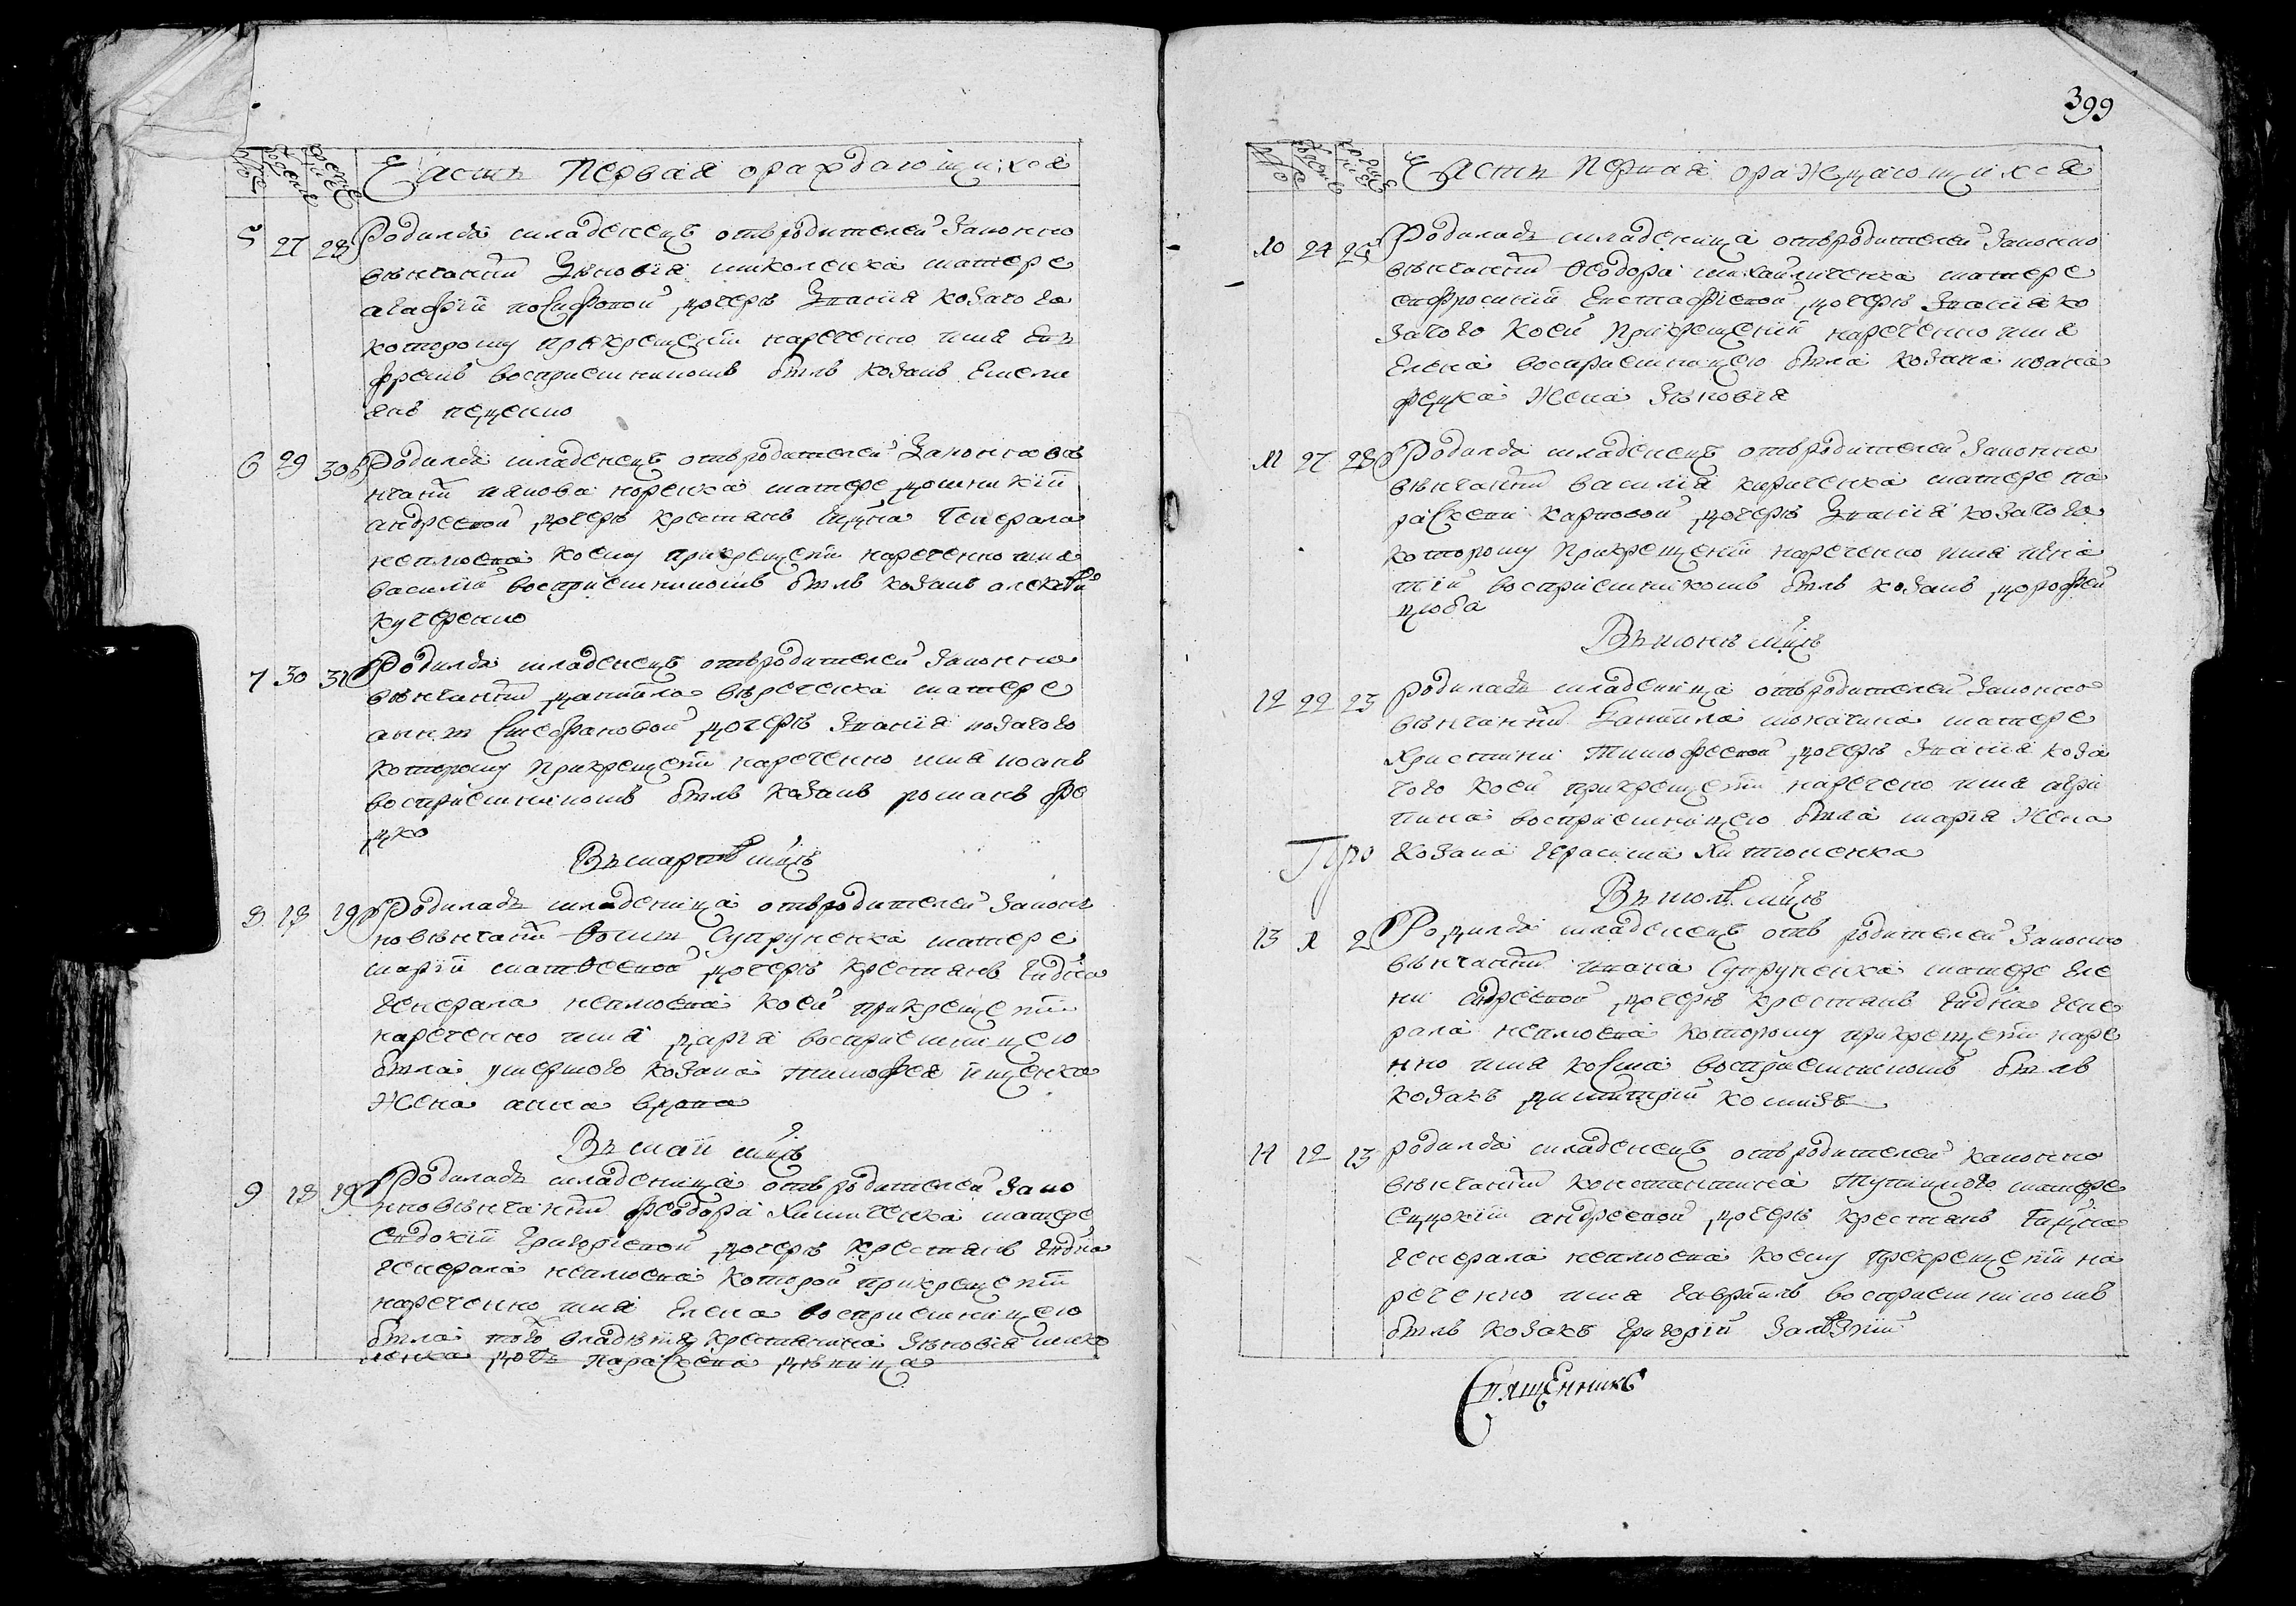 Часть Первая ораждающихся
5 27 28 Родился младенецъ отъ родителей законно
вѣнчанныхъ Зѣновія миколенка матере
агафіи иосифовой дочерѣ званія козачого
которому прикрещеніи наречено имя Ев
фремъ восприемникомъ былъ козакъ Емели
янъ педенко
6 29 30 Родился младенецъ отъ родителей законно вѣ
нчаныхъ иякова коренка матере домникіи
андреевой дочерѣ крестянъ Гдна Генерала
неплюева коему прикрещеніи наречено имя
василій восприемникомъ былъ козакъ алексѣй
кучеренко
7 30 31 Родился младенецъ отъ родителей законно
вѣнчанныхъ даніила матере
анны Стефановой дочерѣ званія козачого
которому прикрещеніи наречено имя иоанъ
восприемникомъ былъ козакъ романъ фе
дко
Въ мартѣ мцѣ
8 18 19 Родиласъ младеница отъ родителей законъ
новѣнчаныхъ Ѳомы Супруненка матере
маріи матвѣевой дочерѣ крестянъ Гдна
Генерала неплюева коей прикрещеніи
наречено имя дарія восприемницею
была умершого козака тимофея ищенка
жена анна вдова
Въ маіи мцѣ
9 18 19 Родиласъ младеница отъ родителей зако
нновѣнчанныхъ феодора матере
Евдокіи Григоріевой дочерѣ крестянъ Гдна
Генерала неплюева которой прикрещеніи
наречено имя Елена восприемницею
была того владѣнія крестянина Зѣновія мико
ленка дочь параскева дѣвица
399
Часть Первая ораждающихся
10 24 25 Родиласъ младеница отъ родителей законно
вѣнчанныхъ Ѳеодора михайличенка матере
ефросиніи Евстафіевой дочерѣ званія ко
зачого коей прикрещеніи наречено имя
Елена восприемницею была козака ивана
федка жена Зѣновія
11 27 28 Родился младенецъ отъ родителей законно
вѣнчанныхъ василія кириченка матере па
раскеви карповой дочерѣ званія козачого
которому прикрещеніи наречено имя игна
тій восприемникомъ былъ козакъ дорофей
дзюба
Въ июнѣ мцѣ
12 22 23 родиласъ младеница отъ родителей законно
вѣнчанныхъ даніила матере
Христини тимофеевой дочерѣ званія коза
чого коей прикрещеніи наречено имя агри
пина восприемницею была марія жена
Про козака Герасима
Въ июлѣ мцѣ
13 1 2 Родился младенецъ отъ родителей законно
вѣнчанныхъ ивана Супруненка матере Еле
ни андреевой дочерѣ крестянъ Гдна Гене
рала неплюева которому прикрещеніи наре
нно имя косма восприемникомъ былъ
козакъ димитрій
14 12 13 родился младенецъ отъ родителей законно
вѣнчанныхъ константина матере
Евдокіи андреевой дочерѣ крестянъ Гдна
Генерала неплюева коему прекрещеніи на
речено имя Гавріилъ восприемникомъ
былъ козакъ Григорій
Священникъ